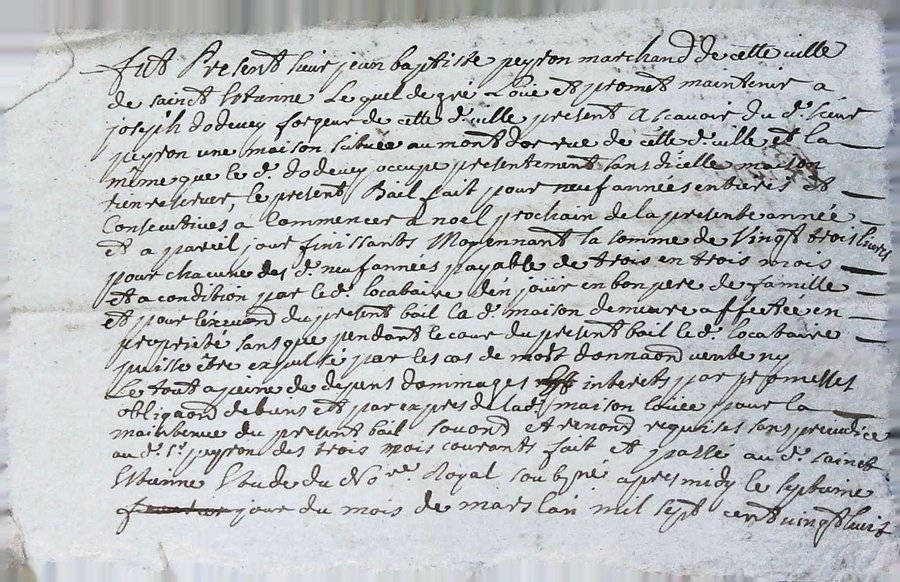 Fut Present sieur jean baptiste peyron marchand de cette ville
de sainct Estienne Lequel de gré Loüe et promet maintenir a
joseph dodevey forgeur de cette d. ville present Ascavoir du d. sieur
peyron une maison située au mont dor rue de cette d. ville et la
même que le d. dodevey occupe presentement sans dicelle maison
rien reserver le present Bail fait pour neuf années entieres et
Consecutives a Commencer a noel prochain de la presente année
Et a pareil jour finissants Moyennant la somme de Vingt trois livres
pour chacune des d. neuf années payable de trois en trois mois
Et a condition par le d. locataire den jouir en bon pere de famille
et pour du present bail la d. maison demeure affectée en
propriete sans que pendant le cour du present bail le d. locataire
puisse être expulsé par les cas de mort donnaond vente ny
Le tout a peine de depens dommages interets par promesses
obligaond de biens et par exprés de lad. maison loüée pour la
maintenue du present bail et renond requises sans prejudice
au d. sr. peyron des trois mois courants fait et passé au d. sainct
Estienne Etude du Nore. Royal soubsne apres midy le septieme
jour du mois de mars lan mil sept cent vingt huit